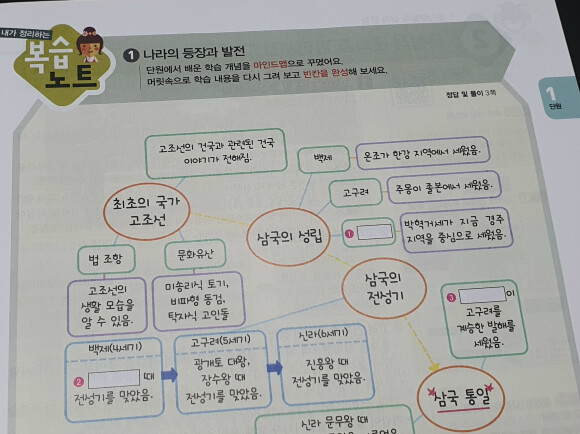 내가 정리하는
복습
노트
1 나라의 등장과 발전
단원에서 배운 학습 개념을 마인드맵으로 꾸몄어요.
머릿속으로 학습 내용을 다시 그려 보고 빈칸을 완성해 보세요.
정답 및 풀이 3쪽
1
단원
고조선의 건국과 관련된 건국
이야기가 전해짐.
최초의 국가
고조선
법 조항
고조선의
생활 모습을
알 수 있음.
문화유산
미송리식 토기,
비파형 동검,
탁자식 고인돌
삼국의 성립
백제
온조가 한강 지역에서 세웠음.
고구려
주몽이 졸본에서 세웠음.
1
박혁거세가 지금 경주
지역을 중심으로 세웠음.
삼국의
전성기
백제(4세기)
2 때
전성기를 맞았음.
고구려(5세기)
광개토 대왕,
장수왕 때
전성기를 맞았음.
신라(6세기)
진흥왕 때
전성기를 맞았음.
3 이
고구려를
계승한 발해를
세웠음.
삼국 통일
신라 문무왕 때